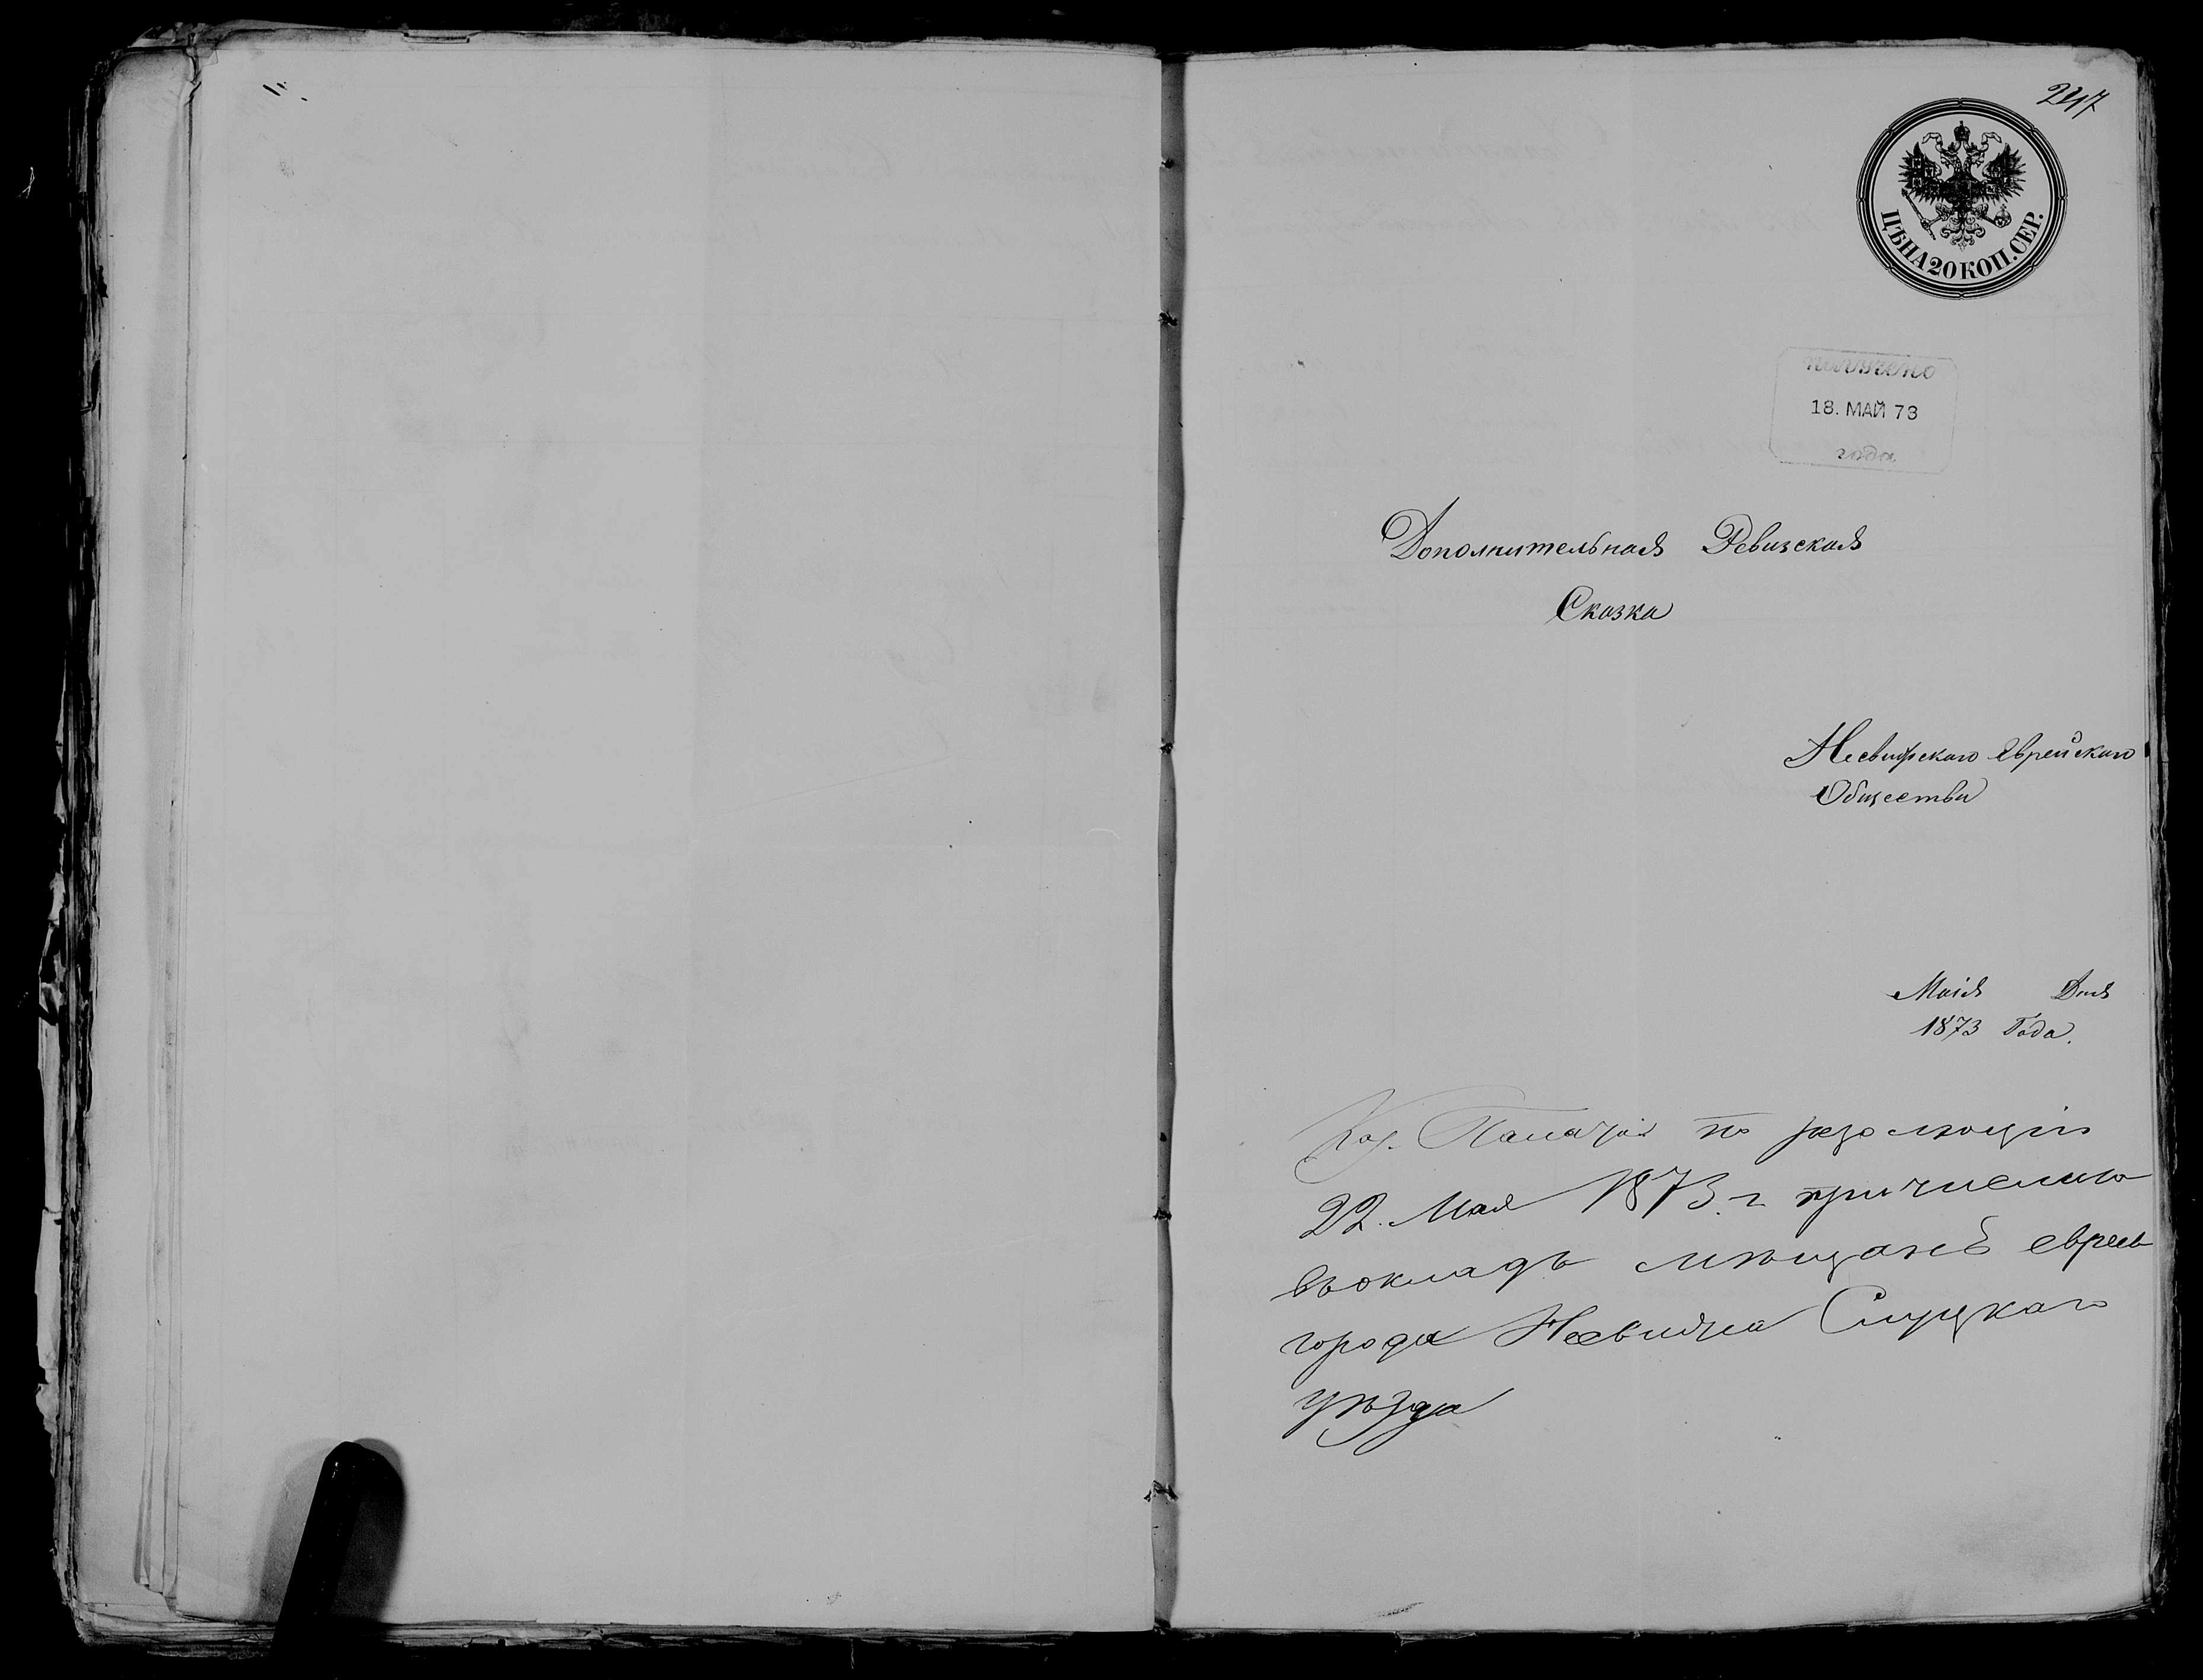 247
ЦѢНА 20 КОП. СЕР.
получено
18. МАЙ 73
года
Дополнительная Ревизская
Сказка
Несвижскаго Еврейскаго
Общества
Маія Дня
1873 Года.
Каз. Палатой по резолюціи
22. Мая 1873 г. причислено
въ окладъ мѣщанъ евреевъ
города Несвижа Слуцкаго
уѣзда